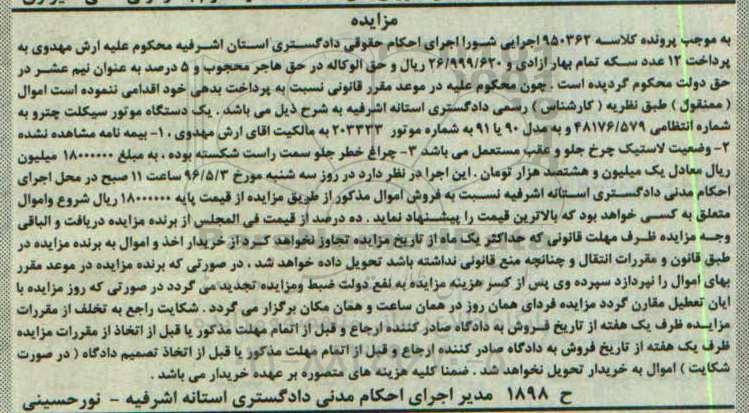 مزایده
به موجب پرونده کلاسه ۹۵۰۳۶۲ اجرایی شورا اجرای احکام حقوقی دادگستری استان اشرفیه محکوم علیه ارش مهدوی به
پرداخت ۱۲ عدد سکه تمام بهار آزادی و ۲۶/۹۹۹/۶۲۰ ریال و حق الوکاله در حق هاجر محجوب و ۵ درصد به عنوان نیم عشر در
حق دولت محکوم گردیده است . چون محکوم علیه در موعد مقرر قانونی نسبت به پرداخت بدهی خود اقدامی ننموده است اموال
( ممنقول ) طبق نظریه ( کارشناس ) رسمی دادگستری استانه اشرفیه به شرح ذیل می باشد . یک دستگاه موتور سیکلت چترو به
شماره انتظامی ۴۸۱۷۶/۵۷۹ و به مدل ۹۰ یا ۹۱ به شماره موتور ۲۰۳۳۳۳ به مالکیت اقای ارش مهدوی ، ۱- بیمه نامه مشاهده نشده
۲- وضعیت لاستیک چرخ جلو و عقب مستعمل می باشد ۳- چراغ خطر جلو سمت راست شکسته بوده ، به مبلغ ۱۸۰۰۰۰۰۰ میلیون
ریال معادل یک میلیون و هشتصد هزار تومان . این اجرا در نظر دارد در روز سه شنبه مورخ ۹۶/۵/۳ ساعت ۱۱ صبح در محل اجرای
احکام مدنی دادگستری استانه اشرفیه نسبت به فروش اموال مذکور از طریق مزایده از قیمت پایه ۱۸۰۰۰۰۰۰ ریال شروع واموال
متعلق به کسی خواهد بود که بالاترین قیمت را پیشنهاد نماید . ده درصد از قیمت فی المجلس از برنده مزایده دریافت و الباقی
وجه مزایده ظرف مهلت قانونی که حداکثر یک ماه از تاریخ مزایده تجاوز نخواهد کرد از خریدار اخذ و اموال به برنده مزایده در
طبق قانون و مقررات انتقال و چنانچه منع قانونی نداشته باشد تحویل داده خواهد شد . در صورتی که برنده مزایده در موعد مقرر
بهای اموال را نپردازد سپرده وی پس از کسر هزینه مزایده به نفع دولت ضبط ومزایده تجدید می گردد در صورتی که روز مزایده با
ایان تعطیل مقارن گردد مزایده فردای همان روز در همان ساعت و همان مکان برگزار می گردد . شکایت راجع به تخلف از مقررات
مزایده ظرف یک هفته از تاریخ فروش به دادگاه صادر کننده ارجاع و قبل از اتمام مهلت مذکور یا قبل از اتخاذ از مقررات مزایده
ظرف یک هفته از تاریخ فروش به دادگاه صادر کننده ارجاع و قبل از اتمام مهلت مذکور یا قبل از اتخاذ تصمیم دادگاه ( در صورت
شکایت ) اموال به خریدار تحویل نخواهد شد . ضمنا کلیه هزینه های متصوره بر عهده خریدار می باشد .
ح ۱۸۹۸ مدیر اجرای احکام مدنی دادگستری استانه اشرفیه - نورحسینی